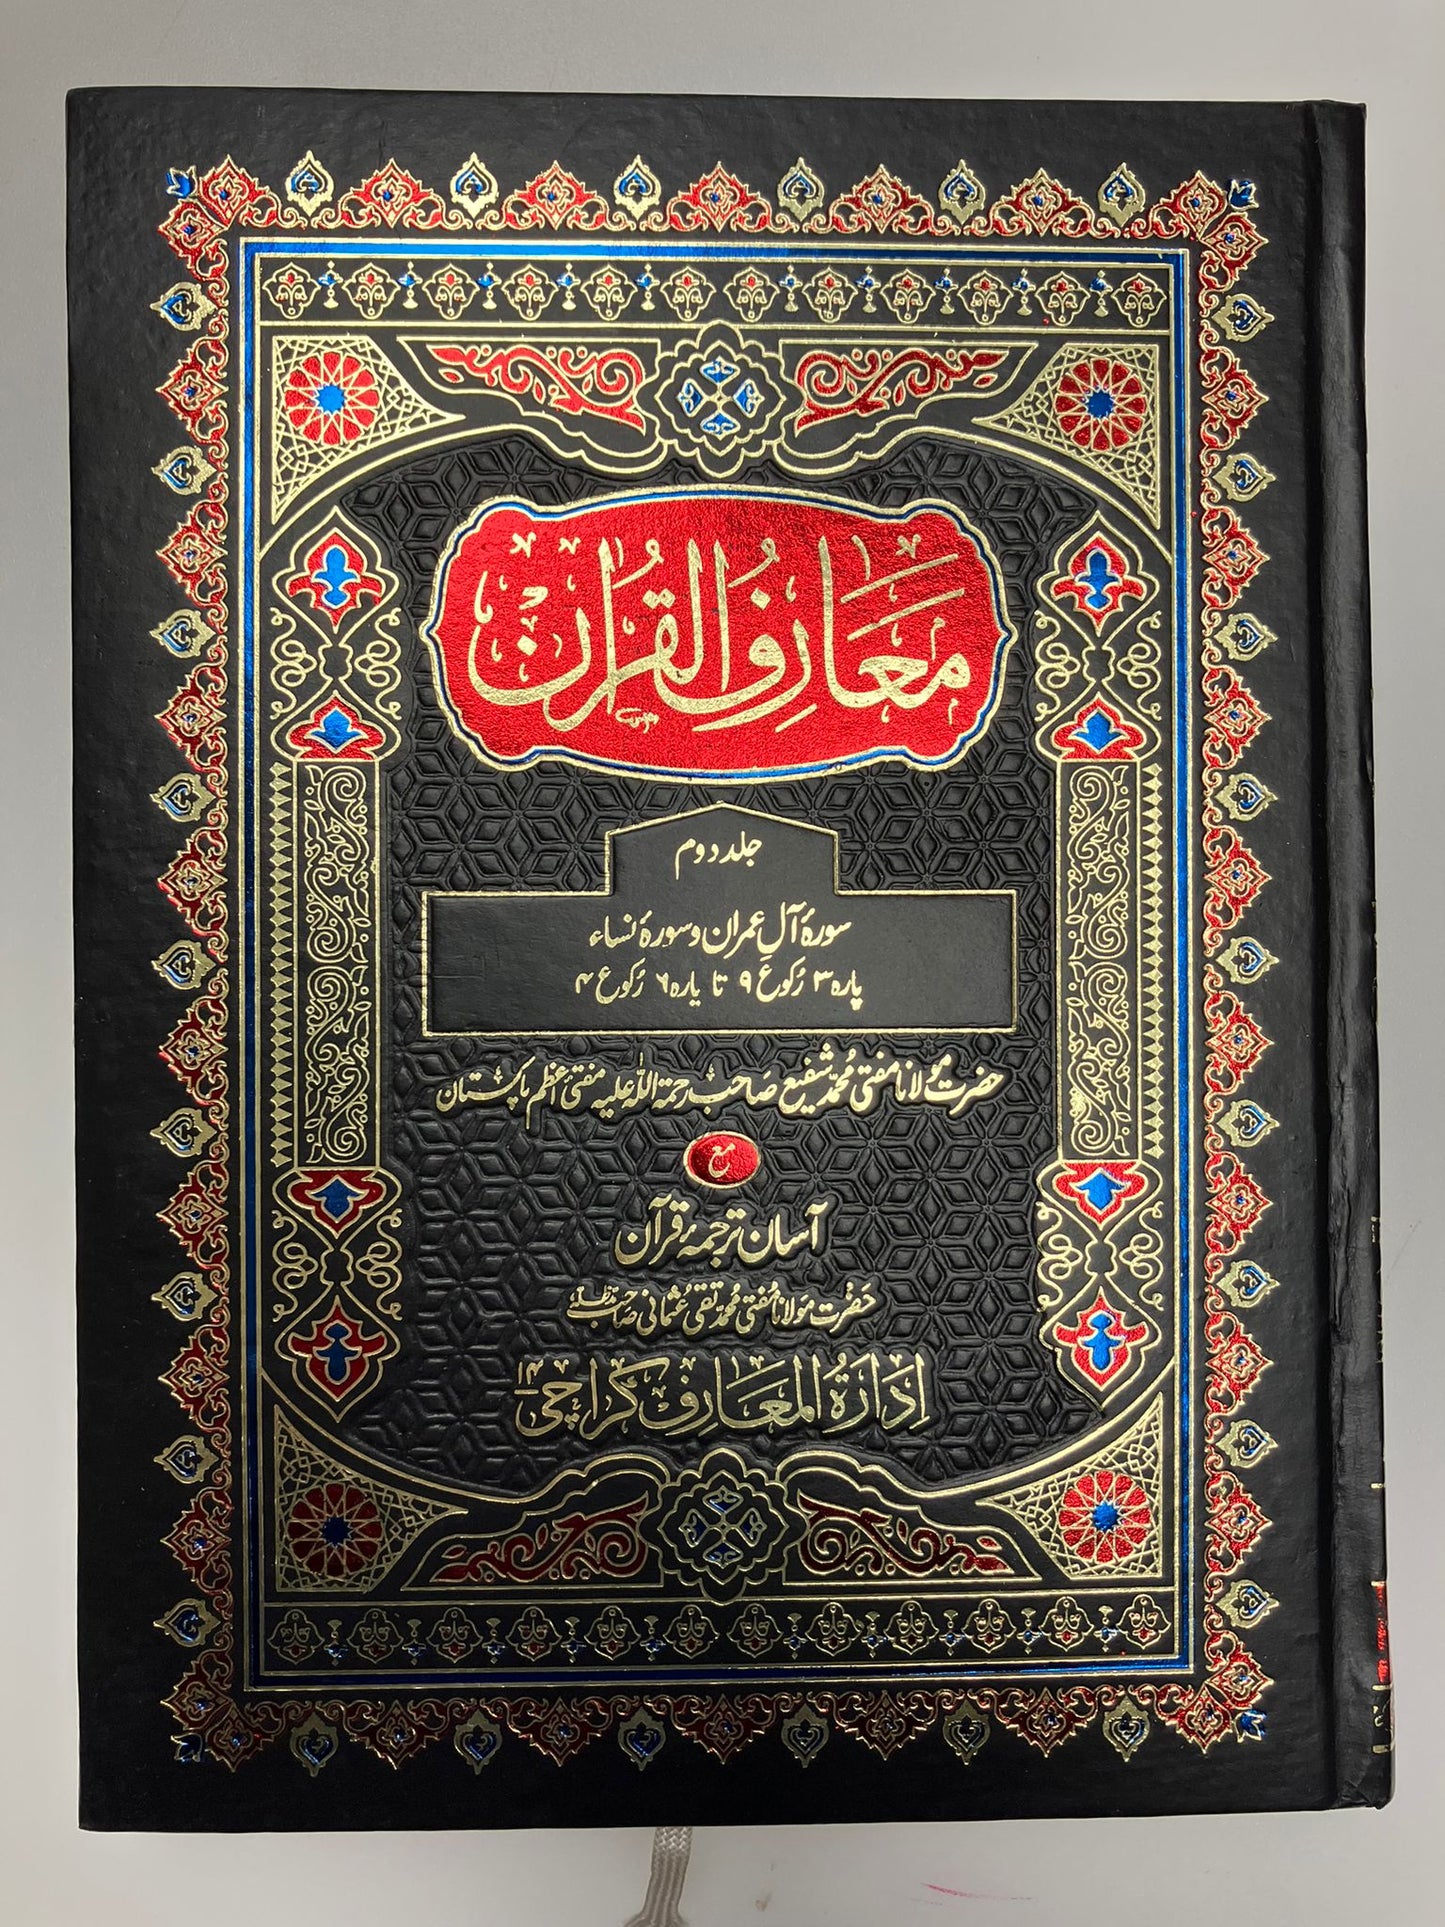 معارف القرآن
جلد دوم
سورۂ آلِ عمران و سورۂ نساء
پارہ ۳ رکوع ۹ تا پارہ ۶ رکوع ۴
حضرت مولانا مفتی محمد شفیع صاحب رحمۃ اللہ علیہ مفتیٔ اعظم پاکستان
مع
آسان ترجمۂ قرآن
حضرت مولانا مفتی محمد تقی عثمانی صاحب مدظلہ
ادارۃ المعارف کراچی ۱۴